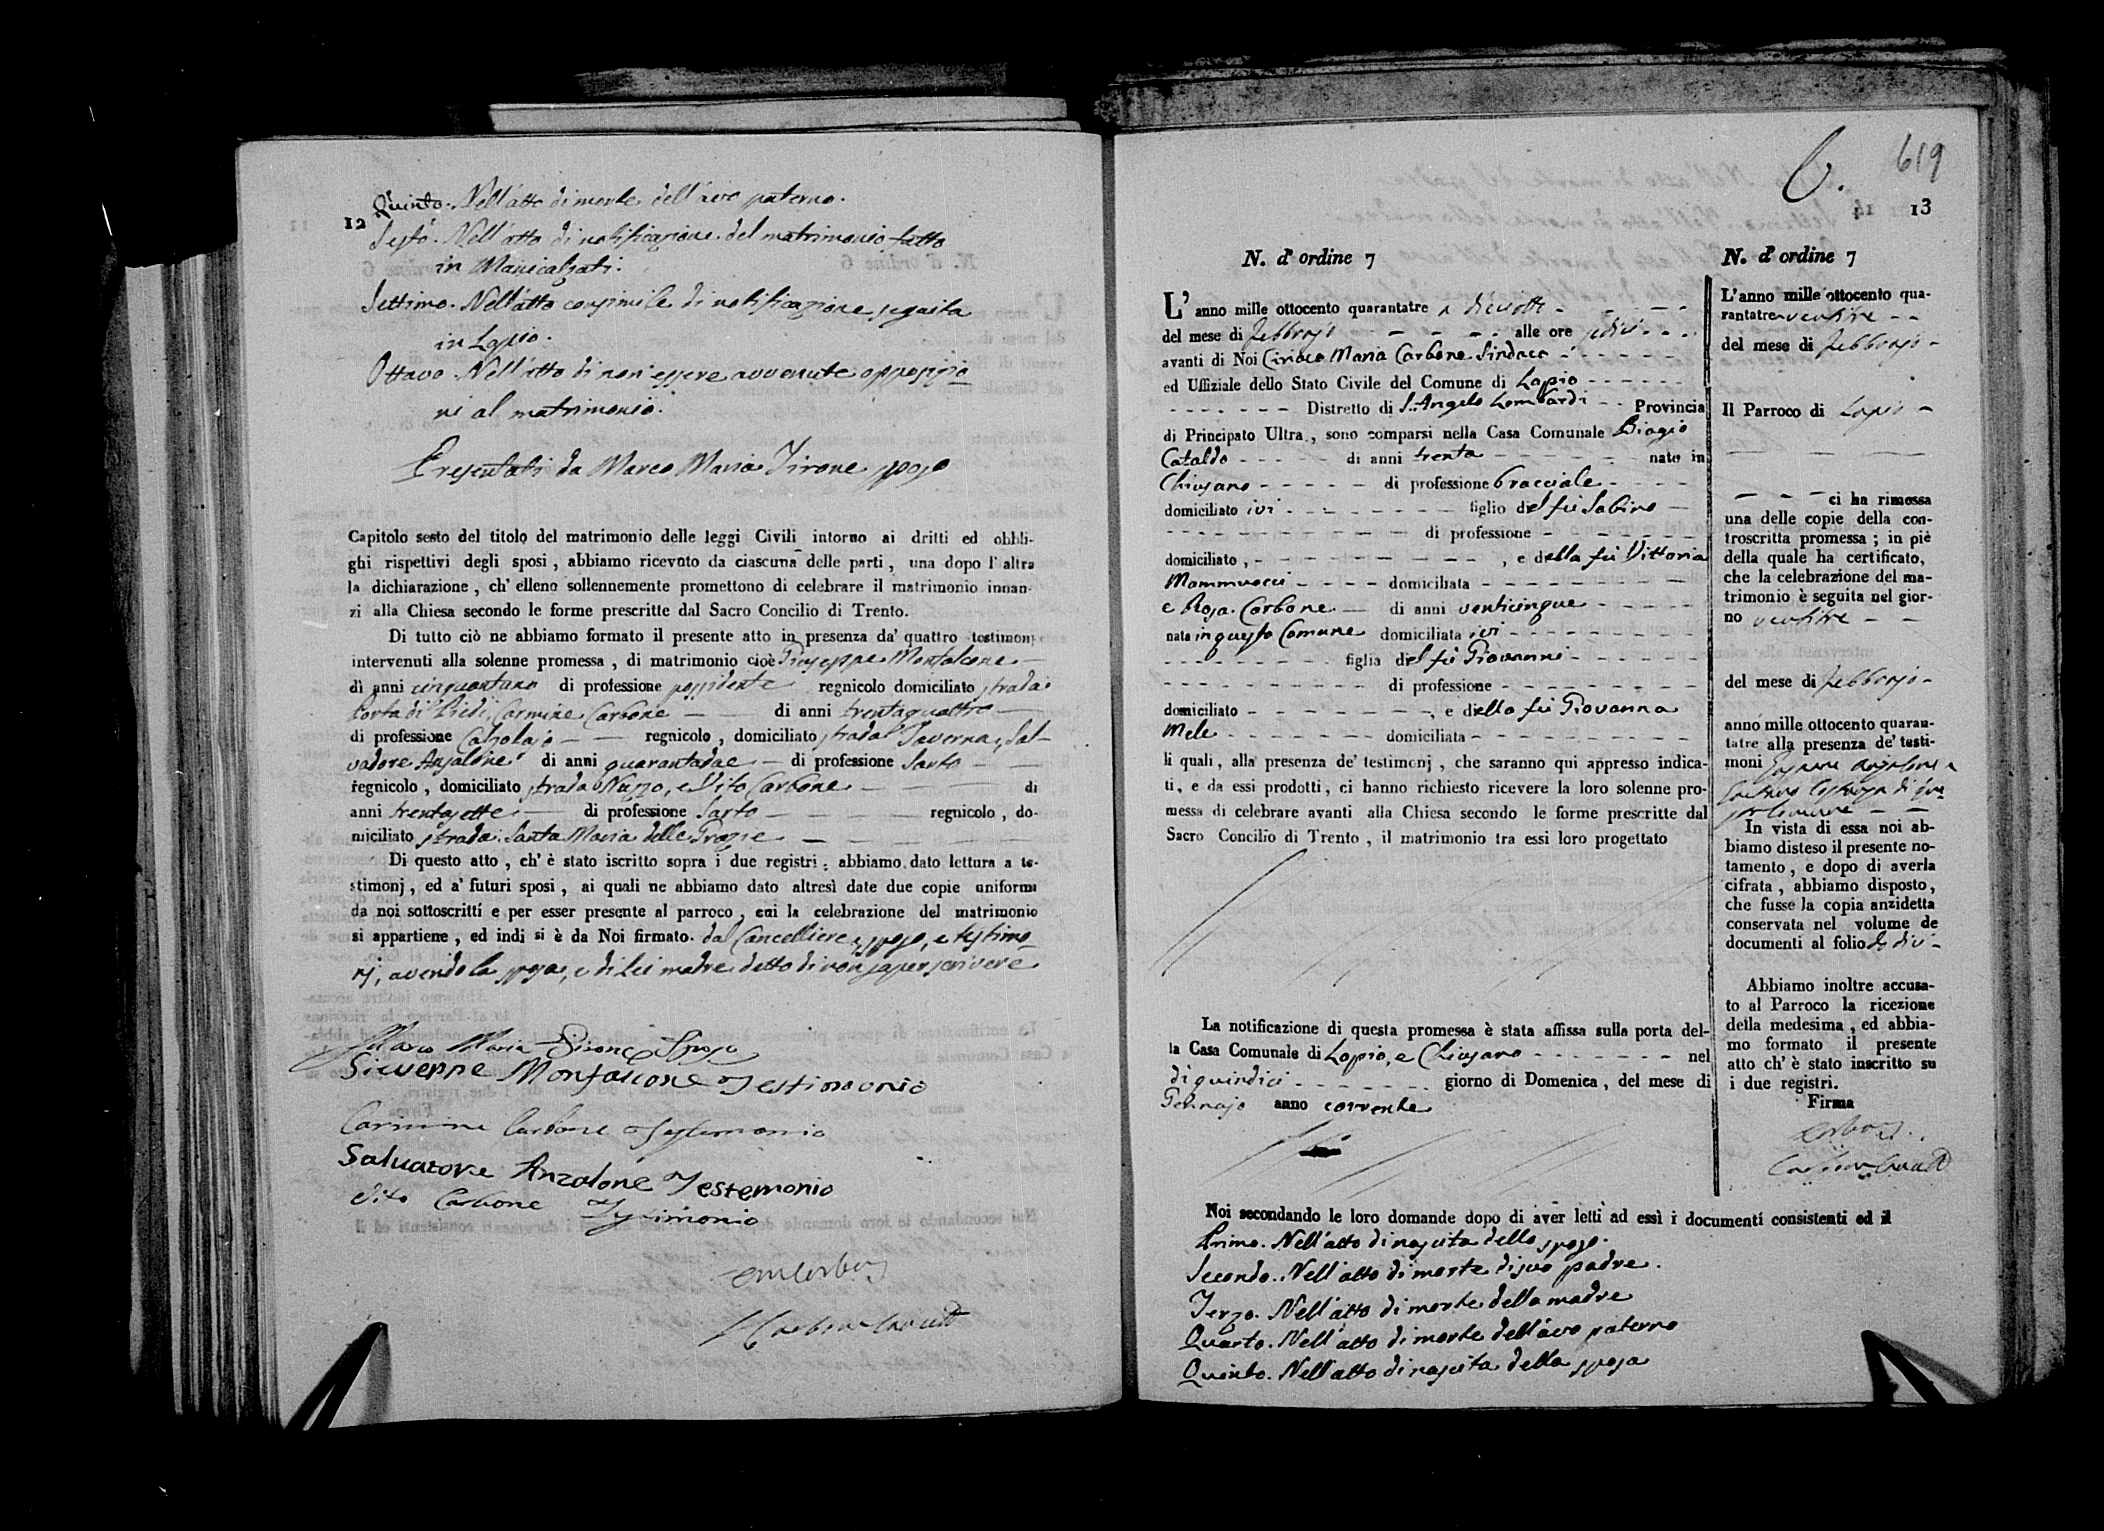 12
Quinto. Nell'atto di morte dell'avo paterno.
Sesto. Nell'atto di notificazione del matrimonio fatto
in Manicalzati.
Settimo. Nell'atto consimile di notificazione seguita
in Lapio.
Ottavo. Nell'atto di non essere avvenute opposizio
ni al matrimonio.
Presentati da Marco Maria Sirone sposo
Capitolo sesto del titolo del matrimonio delle leggi Civili intorno ai dritti ed obbli-
ghi rispettivi degli sposi, abbiamo ricevuto da ciascuna delle parti, una dopo l'altra
la dichiarazione, ch'elleno sollennemente promettono di celebrare il matrimonio innan-
zi alla Chiesa secondo le forme prescritte dal Sacro Concilio di Trento.
Di tutto ciò ne abbiamo formato il presente atto in presenza da' quattro testimonj
intervenuti alla solenne promessa, di matrimonio cioè Giuseppe Monfalcone
di anni cinquantuno di professione possidente regnicolo domiciliato strada
Porta di Piedi, Carmine Carbone di anni trentaquattro
di professione Calzolajo regnicolo, domiciliato strada Taverna, Sal-
vadore Anzalone di anni quarantadue di professione Sarto
regnicolo, domiciliato strada Nuzzo, e Vito Carbone di
anni trentasette di professione Sarto regnicolo, do-
miciliato strada Santa Maria delle Grazie
Di questo atto, ch'è stato iscritto sopra i due registri: abbiamo dato lettura a te-
stimonj, ed a' futuri sposi, ai quali ne abbiamo dato altresì date due copie uniformi
da noi sottoscritti e per esser presente al parroco, cui la celebrazione del matrimonio
si appartiene, ed indi si è da Noi firmato. dal Cancelliere, sposo, e testimo
nj, avendo la sposa, e di lei madre detto di non saper scrivere
Marco Maria Sirone Sposo
Giuseppe Monfalcone Testimonio
Carmine Carbone Testimonio
Salvatore Anzalone Testemonio
Vito Carbone Testimonio
6. 619
13
N. d'ordine 7
L'anno mille ottocento quarantatre a dieciotto
del mese di Febbrajo alle ore sedici
avanti di Noi Ciriaco Maria Carbone Sindaco
ed Uffiziale dello Stato Civile del Comune di Lapio
Distretto di S. Angelo Lombardi Provincia
di Principato Ultra, sono comparsi nella Casa Comunale Biagio
Cataldo di anni trenta nato in
Chiusano di professione bracciale
domiciliato ivi figlio del fù Sabino
di professione
domiciliato, , e della fù Vittoria
Mammuocci domiciliata
e Rosa Carbone di anni venticinque
nata in questo Comune domiciliata ivi
figlia del fù Giovanni
di professione
domiciliato , e della fù Giovanna
Mele domiciliata
li quali, alla presenza de' testimonj, che saranno qui appresso indica-
ti, e da essi prodotti, ci hanno richiesto ricevere la loro solenne pro-
messa di celebrare avanti alla Chiesa secondo le forme prescritte dal
Sacro Concilio di Trento, il matrimonio tra essi loro progettato
La notificazione di questa promessa è stata affissa sulla porta del-
la Casa Comunale di Lapio, e Chiusano nel
dì quindici giorno di Domenica, del mese di
Gennajo anno corrente
Noi secondando le loro domande dopo di aver letti ad essi i documenti consistenti ed il
Primo. Nell'atto di nascita dello sposo.
Secondo. Nell'atto di morte di suo padre.
Terzo. Nell'atto di morte della madre
Quarto. Nell'atto di morte dell'avo paterno
Quinto. Nell'atto di nascita della sposa
N. d'ordine 7
L'anno mille ottocento qua-
rantatre ventitre
del mese di Febbrajo
Il Parroco di Lapio
ci ha rimessa
una delle copie della con-
troscritta promessa; in piè
della quale ha certificato,
che la celebrazione del ma-
trimonio è seguita nel gior-
no ventitre
del mese di Febbrajo
anno mille ottocento quaran-
tatre alla presenza de' testi-
moni
In vista di essa noi ab-
biamo disteso il presente no-
tamento, e dopo di averla
cifrata, abbiamo disposto,
che fusse la copia anzidetta
conservata nel volume de
documenti al folio
Abbiamo inoltre accusa-
to al Parroco la ricezione
della medesima, ed abbia-
mo formato il presente
atto ch'è stato inscritto su
i due registri.
Firma